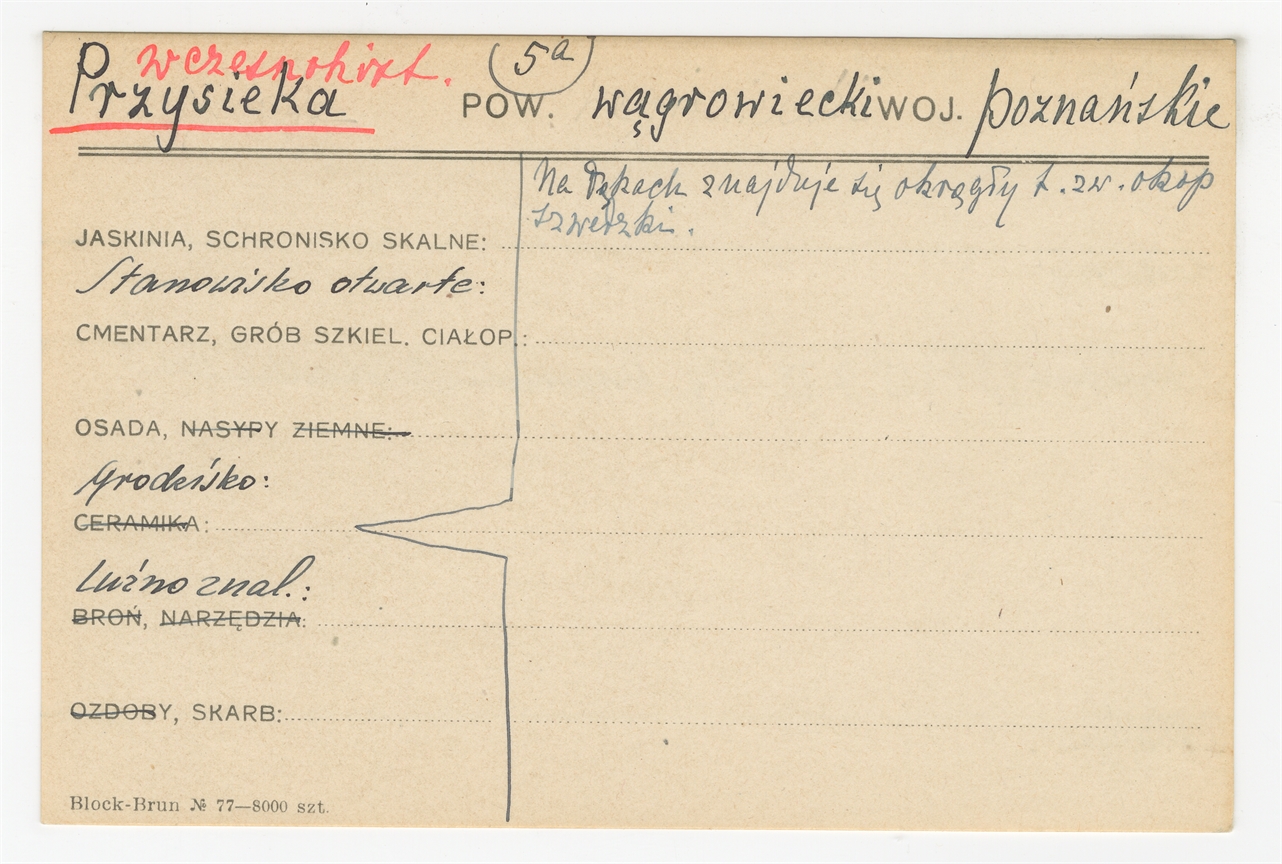 wczesnohist. (5a)
Przysieka POW. wągrowiecki WOJ. poznańskie
Na łąkach znajduje się okrągły t. zw. okop
szwedzki.
JASKINIA, SCHRONISKO SKALNE:
Stanowisko otwarte:
CMENTARZ, GRÓB SZKIEL. CIAŁOP.:
OSADA, NASYPY ZIEMNE:
Grodzisko:
CERAMIKA:
Luźno znal.:
BROŃ, NARZĘDZIA:
OZDOBY, SKARB:
Block-Brun № 77—8000 szt.